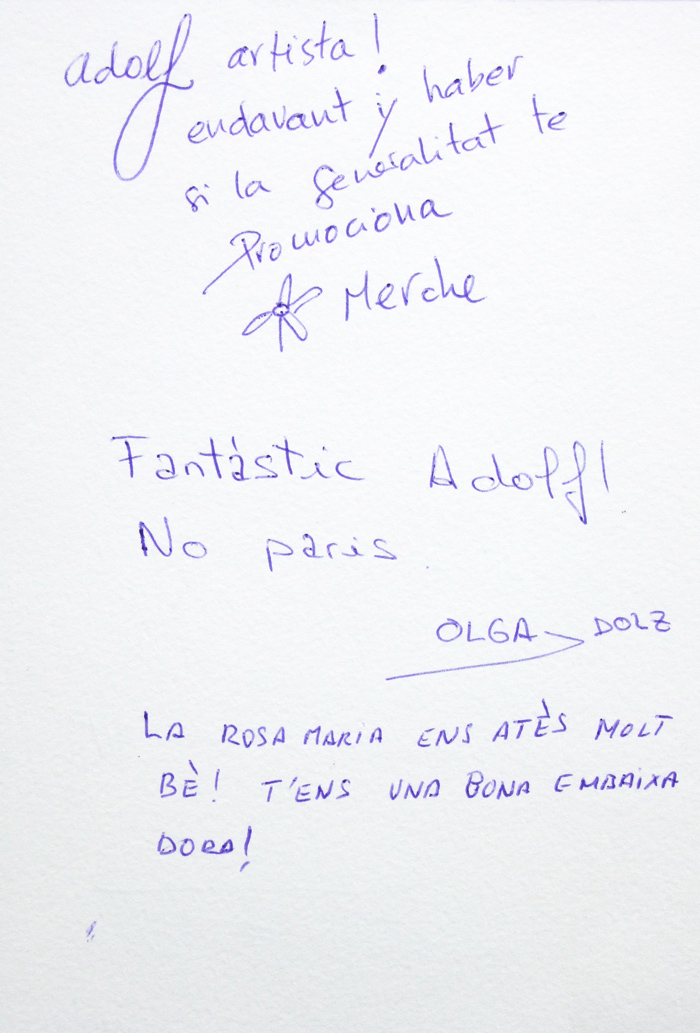 adolf artista!
endavant y haber
si la Generalitat te
Promociona
Merche
Fantàstic Adolf!
No paris.
OLGA DOLZ
LA ROSA MARIA ENS ATÈS MOLT
BÈ! T'ENS UNA BONA EMBAIXA
DORA!